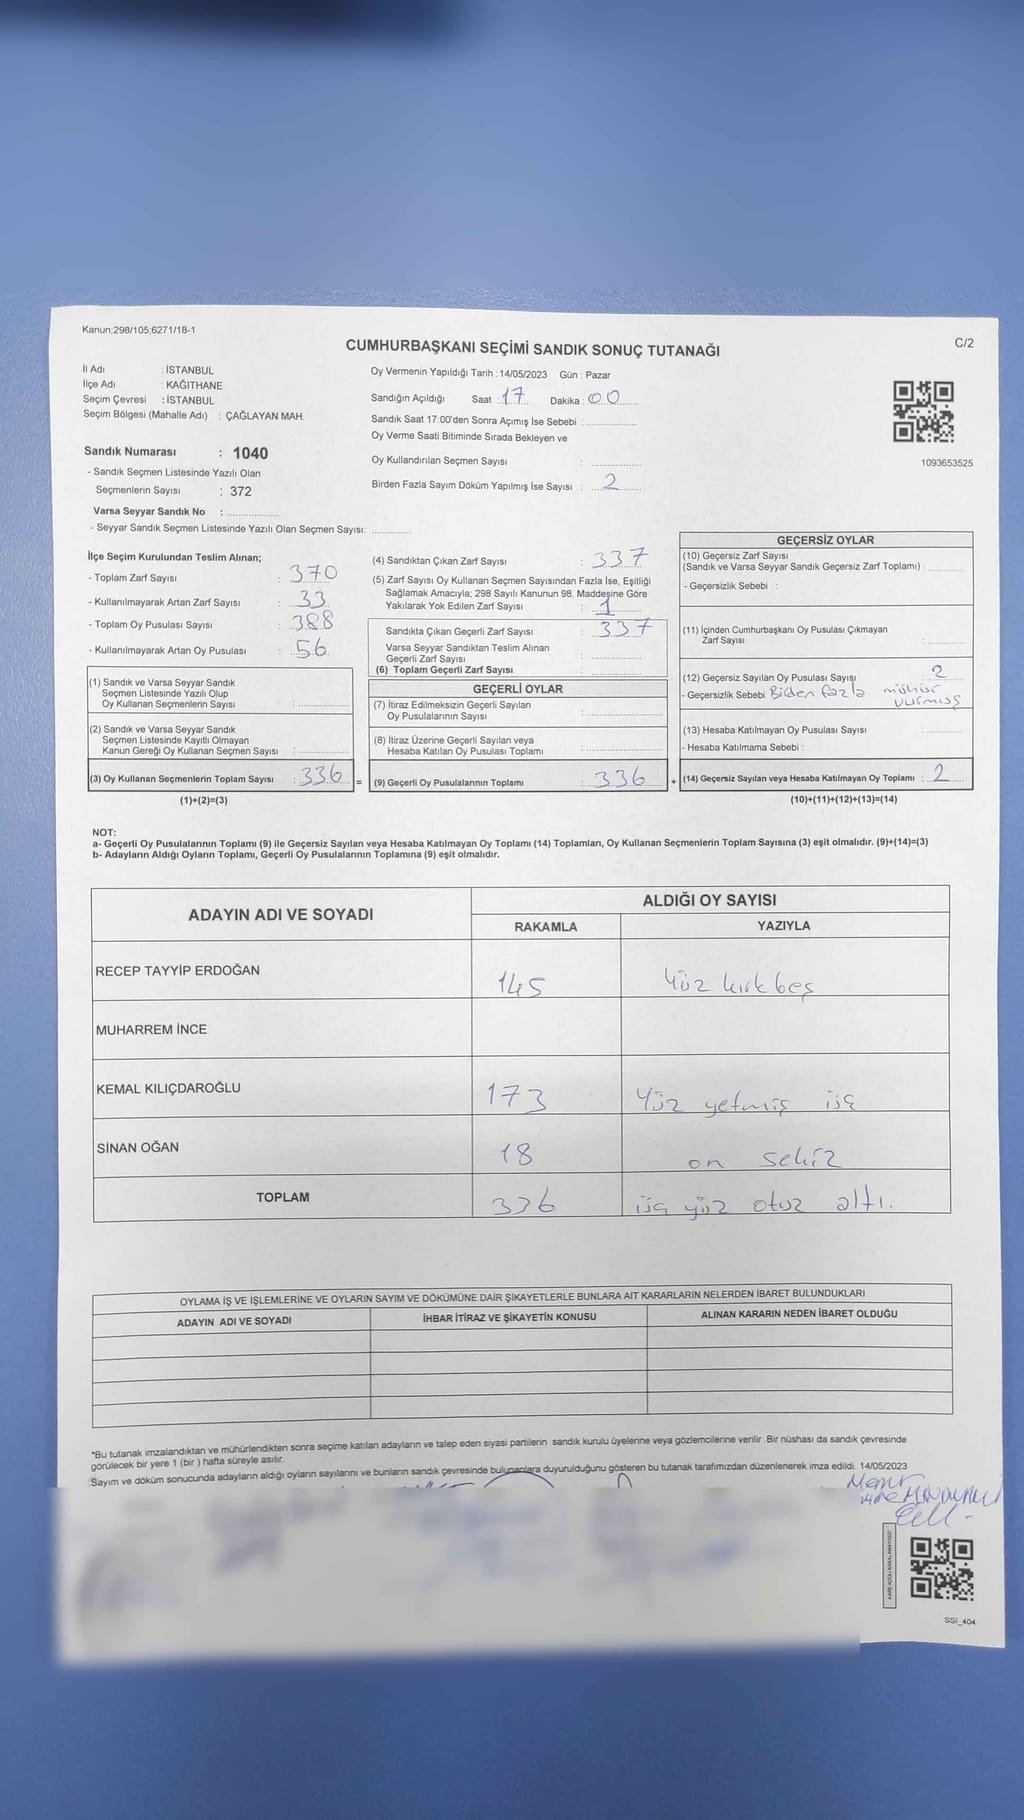 Kanun;298/105;6271/18-1
C/2
CUMHURBAŞKANI SEÇİMİ SANDIK SONUÇ TUTANAĞI
İl Adı : İSTANBUL
İlçe Adı : KAĞITHANE
Seçim Çevresi : İSTANBUL
Seçim Bölgesi (Mahalle Adı) : ÇAĞLAYAN MAH.
Sandık Numarası : 1040
- Sandık Seçmen Listesinde Yazılı Olan
Seçmenlerin Sayısı : 372
Varsa Seyyar Sandık No :
- Seyyar Sandık Seçmen Listesinde Yazılı Olan Seçmen Sayısı:
Oy Vermenin Yapıldığı Tarih : 14/05/2023 Gün : Pazar
Sandığın Açıldığı Saat : 17 Dakika : 00
Sandık Saat 17:00'den Sonra Açımış İse Sebebi :
Oy Verme Saati Bitiminde Sırada Bekleyen ve
Oy Kullandırılan Seçmen Sayısı :
Birden Fazla Sayım Döküm Yapılmış İse Sayısı : 2
1093653525
İlçe Seçim Kurulundan Teslim Alınan;
- Toplam Zarf Sayısı : 370
- Kullanılmayarak Artan Zarf Sayısı : 33
- Toplam Oy Pusulası Sayısı : 388
- Kullanılmayarak Artan Oy Pusulası : 56
(1) Sandık ve Varsa Seyyar Sandık
Seçmen Listesinde Yazılı Olup
Oy Kullanan Seçmenlerin Sayısı :
(2) Sandık ve Varsa Seyyar Sandık
Seçmen Listesinde Kayıtlı Olmayan
Kanun Gereği Oy Kullanan Seçmen Sayısı :
(3) Oy Kullanan Seçmenlerin Toplam Sayısı : 336 =
(1)+(2)=(3)
(4) Sandıktan Çıkan Zarf Sayısı : 337
(5) Zarf Sayısı Oy Kullanan Seçmen Sayısından Fazla İse, Eşitliği
Sağlamak Amacıyla; 298 Sayılı Kanunun 98. Maddesine Göre
Yakılarak Yok Edilen Zarf Sayısı : 1
Sandıkta Çıkan Geçerli Zarf Sayısı : 337
Varsa Seyyar Sandıktan Teslim Alınan
Geçerli Zarf Sayısı :
(6) Toplam Geçerli Zarf Sayısı :
GEÇERLİ OYLAR
(7) İtiraz Edilmeksizin Geçerli Sayılan
Oy Pusulalarının Sayısı :
(8) İtiraz Üzerine Geçerli Sayılan veya
Hesaba Katılan Oy Pusulası Toplamı :
(9) Geçerli Oy Pusulalarının Toplamı : 336 +
GEÇERSİZ OYLAR
(10) Geçersiz Zarf Sayısı
(Sandık ve Varsa Seyyar Sandık Geçersiz Zarf Toplamı) :
- Geçersizlik Sebebi :
(11) İçinden Cumhurbaşkanı Oy Pusulası Çıkmayan
Zarf Sayısı :
(12) Geçersiz Sayılan Oy Pusulası Sayısı : 2
- Geçersizlik Sebebi Birden fazla mühür
vurmuş
(13) Hesaba Katılmayan Oy Pusulası Sayısı :
- Hesaba Katılmama Sebebi :
(14) Geçersiz Sayılan veya Hesaba Katılmayan Oy Toplamı : 2
(10)+(11)+(12)+(13)=(14)
NOT:
a- Geçerli Oy Pusulalarının Toplamı (9) ile Geçersiz Sayılan veya Hesaba Katılmayan Oy Toplamı (14) Toplamları, Oy Kullanan Seçmenlerin Toplam Sayısına (3) eşit olmalıdır. (9)+(14)=(3)
b- Adayların Aldığı Oyların Toplamı, Geçerli Oy Pusulalarının Toplamına (9) eşit olmalıdır.
ADAYIN ADI VE SOYADI
ALDIĞI OY SAYISI
RAKAMLA YAZIYLA
RECEP TAYYİP ERDOĞAN 145 Yüz kırk beş
MUHARREM İNCE
KEMAL KILIÇDAROĞLU 173 Yüz yetmiş üç
SİNAN OĞAN 18 on sekiz
TOPLAM 336 üç yüz otuz altı.
OYLAMA İŞ VE İŞLEMLERİNE VE OYLARIN SAYIM VE DÖKÜMÜNE DAİR ŞİKAYETLERLE BUNLARA AİT KARARLARIN NELERDEN İBARET BULUNDUKLARI
ADAYIN ADI VE SOYADI İHBAR İTİRAZ VE ŞİKAYETİN KONUSU ALINAN KARARIN NEDEN İBARET OLDUĞU
*Bu tutanak imzalandıktan ve mühürlendikten sonra seçime katılan adayların ve talep eden siyasi partilerin sandık kurulu üyelerine veya gözlemcilerine verilir. Bir nüshası da sandık çevresinde
görülecek bir yere 1 (bir ) hafta süreyle asılır.
Sayım ve döküm sonucunda adayların aldığı oyların sayılarını ve bunların sandık çevresinde bulunanlara duyurulduğunu gösteren bu tutanak tarafımızdan düzenlenerek imza edildi. 14/05/2023
SSI_404